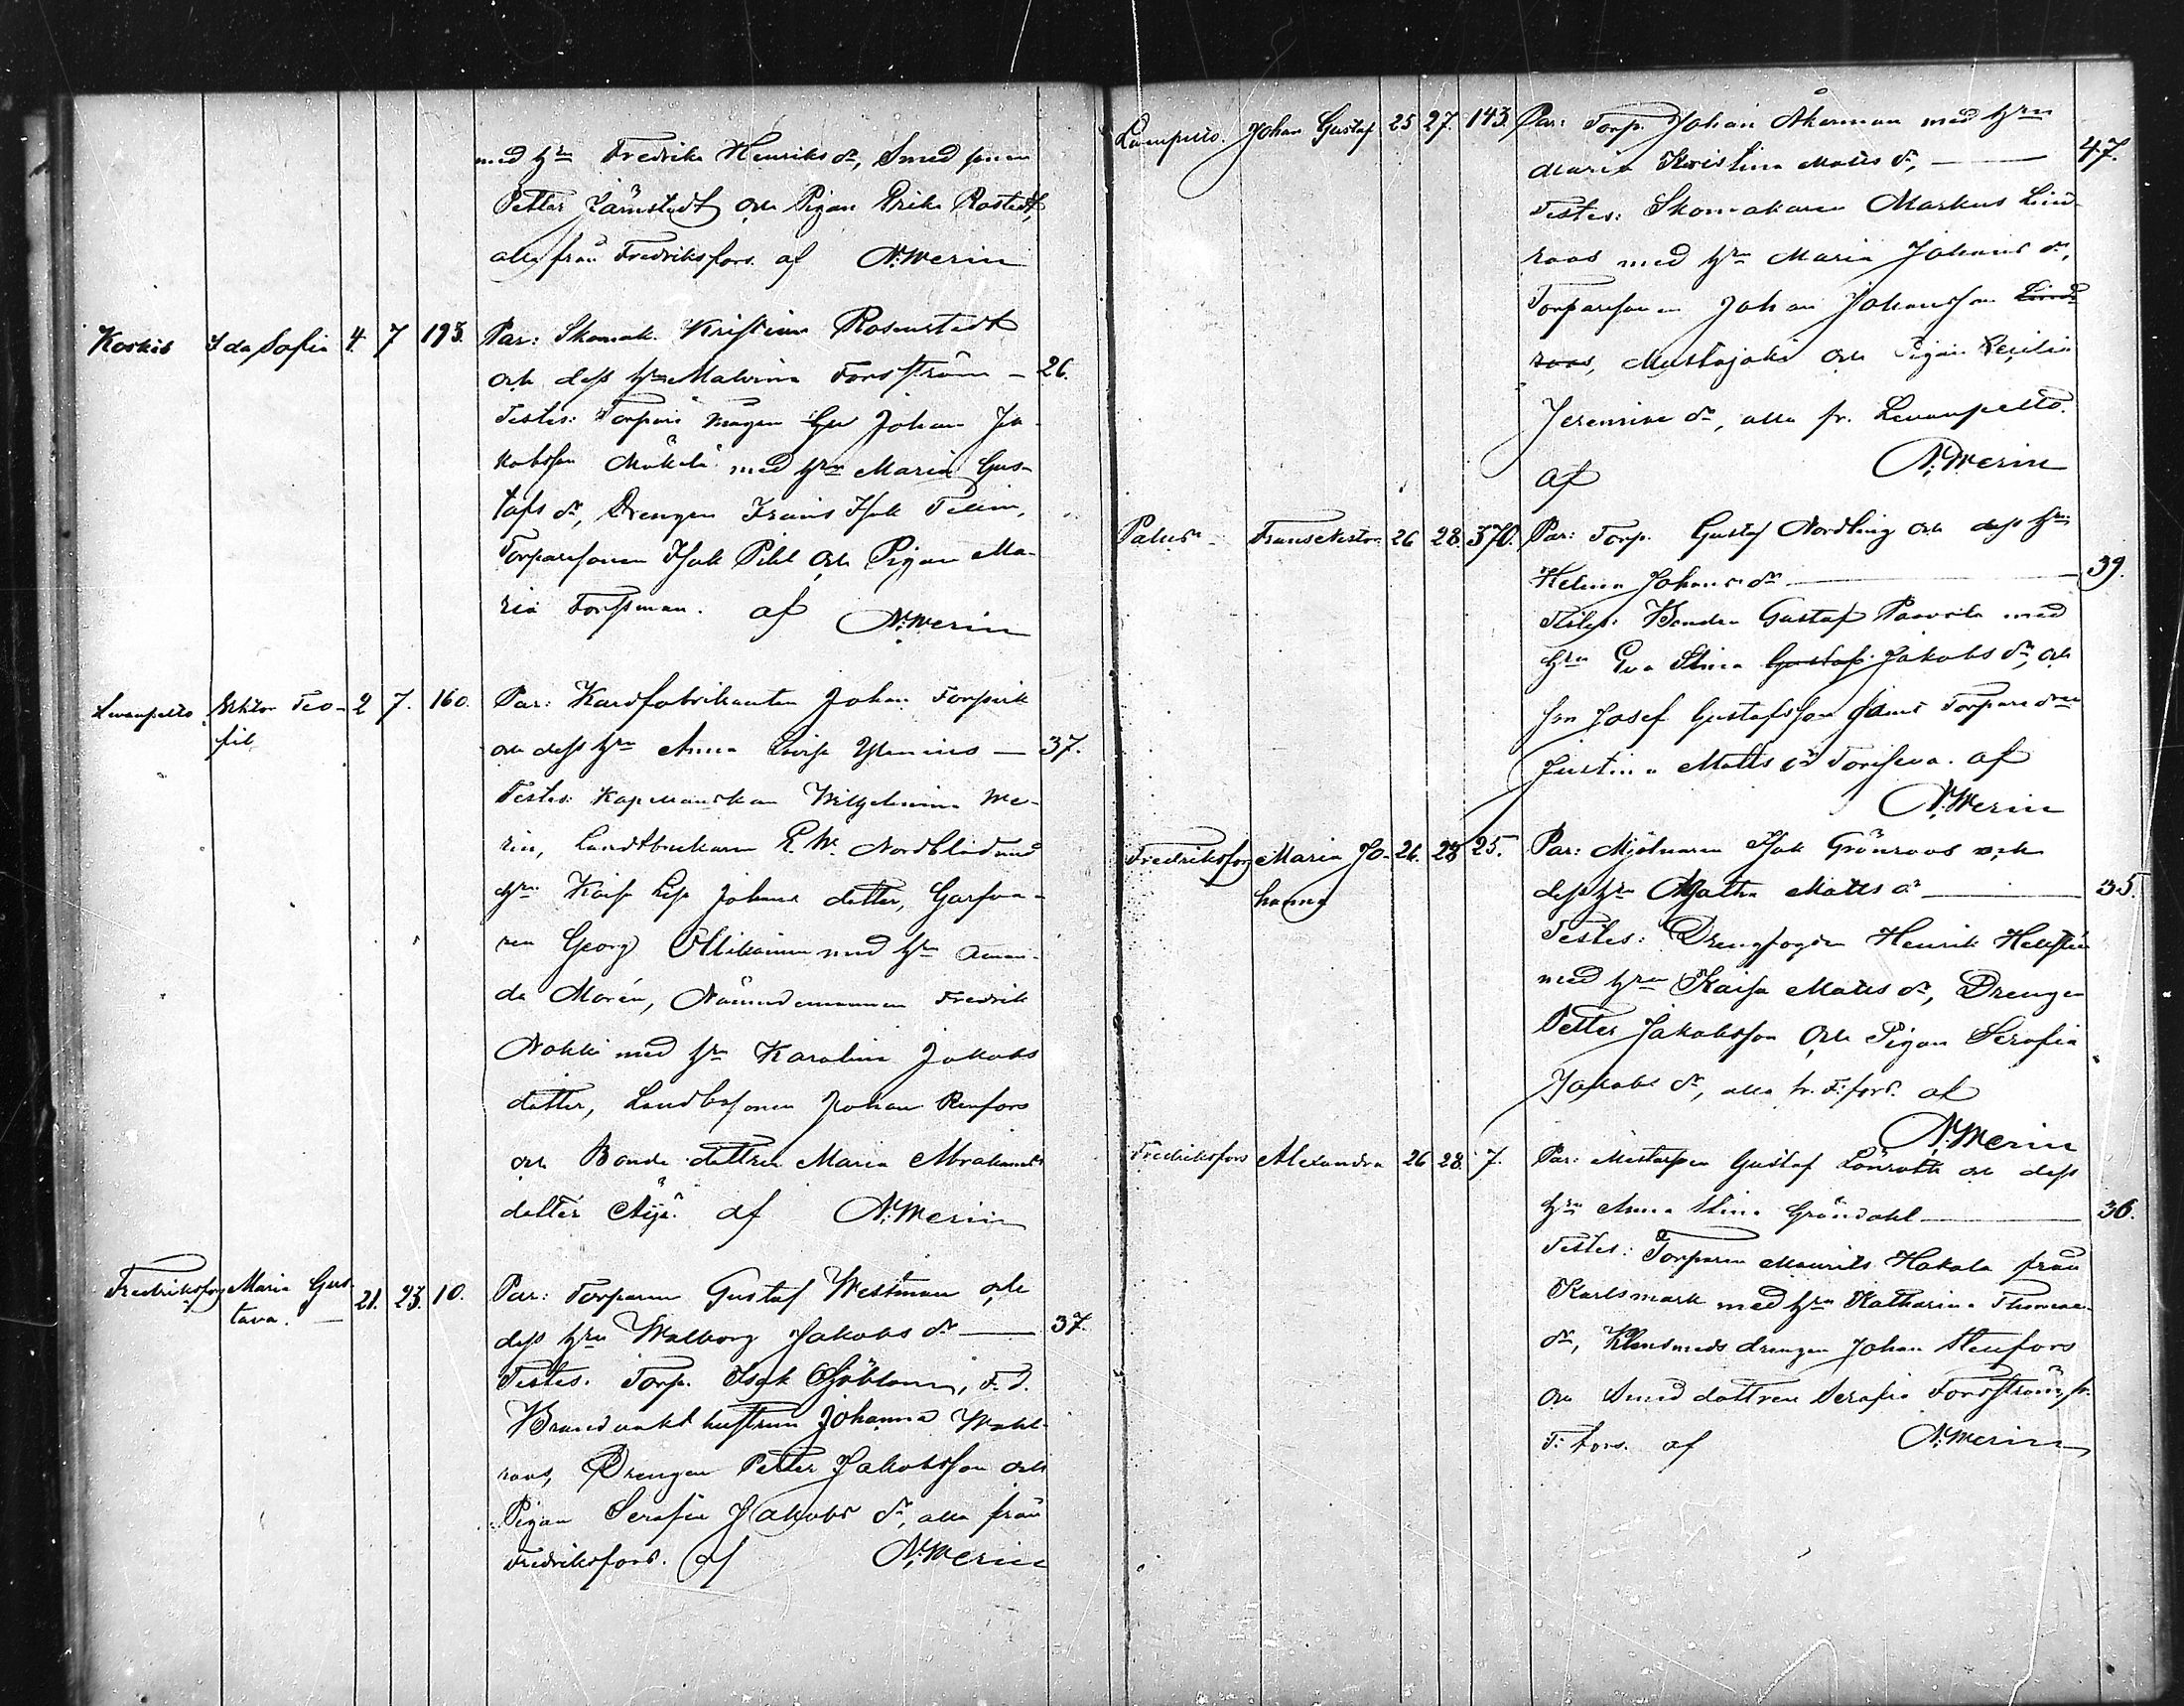 med hru Fredrika Henriks dr, Smed sonen
Petter Järnstedt och Pigan Erika Rostedt,
alla från Fredriksfors. af N. Merin
Koskis Ida Sofia 4. 7 193. Par: Skomak. Kristian Rosenstedt
och dess hru Malvina Forsström — 26.
Testes: Torpare mågen Johan Ja-
kobsson Mäkelä med hru Maria Gus-
tafs dr, Drengen Frans Isak
Torparesonen Isak Pihl och Pigan Ma-
ria Forssman. af N. Merin
Levanpelto Viktor Teo- 2 7. 160. Par: Kardfabrikanten Johan
fil och dess hru Anna Lovisa — 37.
Testes: Kapellanskan Wilhelmina Me-
rin, Landtbrukaren E. W. Nordblad med
hru Kaisa Lisa Johans dotter, Garfva-
ren Georg Ollikainen med hru Aman-
da Morén, Nämndemannen Fredrik
Nokki med hru Karolina Jakobs
dotter, Landbosonen Johan Renfors
och Bonde dottren Maria Abrahams
dotter Äijä. af N. Merin
Fredriksfors Maria Gus- 21. 23. 10. Par: Torparen Gustaf Westman och
tava. dess hru Walborg Jakobs dr — 37.
Testes. Torp. Isak Sjöblom, F. d.
Brandvakt hustrun Johanna Wahl-
roos, Drengen Petter Jakobsson och
Pigan Serafia Jakobs dr, alla från
Fredriksfors. af N. Merin
Johan Gustaf 25 27. 143. Par: Torp. Johan Åkerman med hru
Maria Kristina Matts dr, — 47.
Testes: Skomakaren Markus Lind-
roos med hru Maria Johans dr,
Torparesonen Johan Johansson Lind-
roos, Mustajoki och Pigan Cecilia
Jeremiae dr, alla fr. Levanpelto.
af N. Merin
Palus Frans Nestor 26 28. 370. Par: Torp. Gustaf Nordling och dess hru
Helena Johans dr — 39.
Testes: Bonden Gustaf Paavola med
hru Eva Stina Gustafs Jakobs dr, och
son Josef Gustafsson samt Torpare dren
Justina Matts dr Torisева. af
N. Merin
Fredriksfors Maria Jo- 26. 28 25. Par: Mjölnaren Isak Grönroos och
hanna dess hru Agatha Matts dr — 35.
Testes: Drengfogden Henrik Hellsten
med hru Kaisa Matts dr, Drengen
Petter Jakobsson och Pigan Serafia
Jakobs dr, alla fr. F:fors. af
N. Merin
Fredriksfors Alexandra 26 28. 7. Par: Gustaf Lönroth och dess
hru Anna Stina Gröndahl — 36.
Testes: Torparen Maurits Hakala från
Karlsmark med hru Katharina Thomae
dr, Klensmeds drengen Johan Stenfors
och Smed dottren Serafia Forsström, fr.
F:fors. af N. Merin